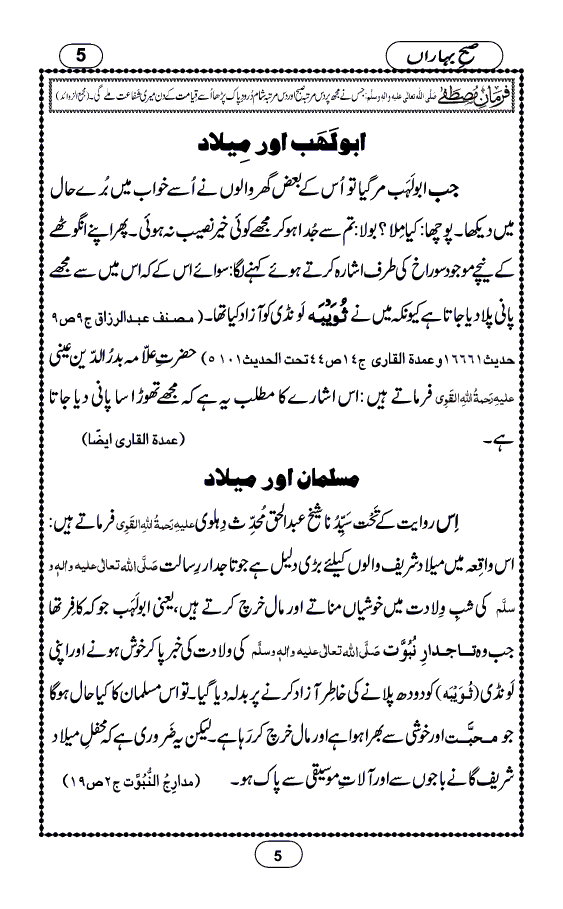 صبحِ بہاراں
5
فرمانِ مصطَفٰے صلَّی اللہ تعالٰی علیہ واٰلہٖ وسلَّم: جس نے مجھ پر دس مرتبہ صبح اور دس مرتبہ شام دُرودِ پاک پڑھا اُسے قیامت کے دن میری شفاعت ملے گی۔ (مجمع الزوائد)
ابولَهَب اور مِیلاد
جب ابولَہَب مر گیا تو اُس کے بعض گھر والوں نے اُسے خواب میں بُرے حال
میں دیکھا۔ پوچھا: کیا مِلا؟ بولا: تم سے جُدا ہو کر مجھے کوئی خیر نصیب نہ ہوئی۔ پھر اپنے انگوٹھے
کے نیچے موجود سوراخ کی طرف اشارہ کرتے ہوئے کہنے لگا: سوائے اس کے کہ اس میں سے مجھے
پانی پلا دیا جاتا ہے کیونکہ میں نے ثُوَیْبَہ لونڈی کو آزاد کیا تھا۔ (مصنف عبدالرزاق ج۹ص۹
حدیث۱۶۶۶۱و عمدۃ القاری ج۱۴ص۴۴تحت الحدیث۵۱۰۱) حضرتِ علّامہ بدرُالدّین عینی
علیہ رَحمۃُ اللہِ القَوِی فرماتے ہیں: اس اشارے کا مطلب یہ ہے کہ مجھے تھوڑا سا پانی دیا جاتا
ہے۔ (عمدۃ القاری ایضًا)
مسلمان اور مِیلاد
اِس روایت کے تَحْت سیِّدُنا شیخ عبدُالحق مُحدِّث دِہلوی علیہ رَحمۃُ اللہِ القَوِی فرماتے ہیں:
اس واقِعہ میں میلاد شریف والوں کیلئے بڑی دلیل ہے جو تاجدارِ رسالت صَلَّی اللہ تعالٰی علیہ واٰلہٖ و
سلَّم کی شبِ وِلادت میں خوشیاں مناتے اور مال خرچ کرتے ہیں، یعنی ابولَہَب جو کہ کافِر تھا
جب وہ تاجدارِ نُبُوَّت صَلَّی اللہ تعالٰی علیہ واٰلہٖ وسلَّم کی ولادت کی خبر پا کر خوش ہونے اور اپنی
لونڈی (ثُوَیْبَہ) کو دودھ پلانے کی خاطر آزاد کرنے پر بدلہ دیا گیا۔ تو اس مسلمان کا کیا حال ہوگا
جو مَحبَّت اور خوشی سے بھرا ہوا ہے اور مال خرچ کر رہا ہے۔ لیکن یہ ضَروری ہے کہ محفلِ میلاد
شریف گانے باجوں سے اور آلاتِ موسیقی سے پاک ہو۔ (مدارِجُ النُّبُوَّت ج۲ص۱۹)
5